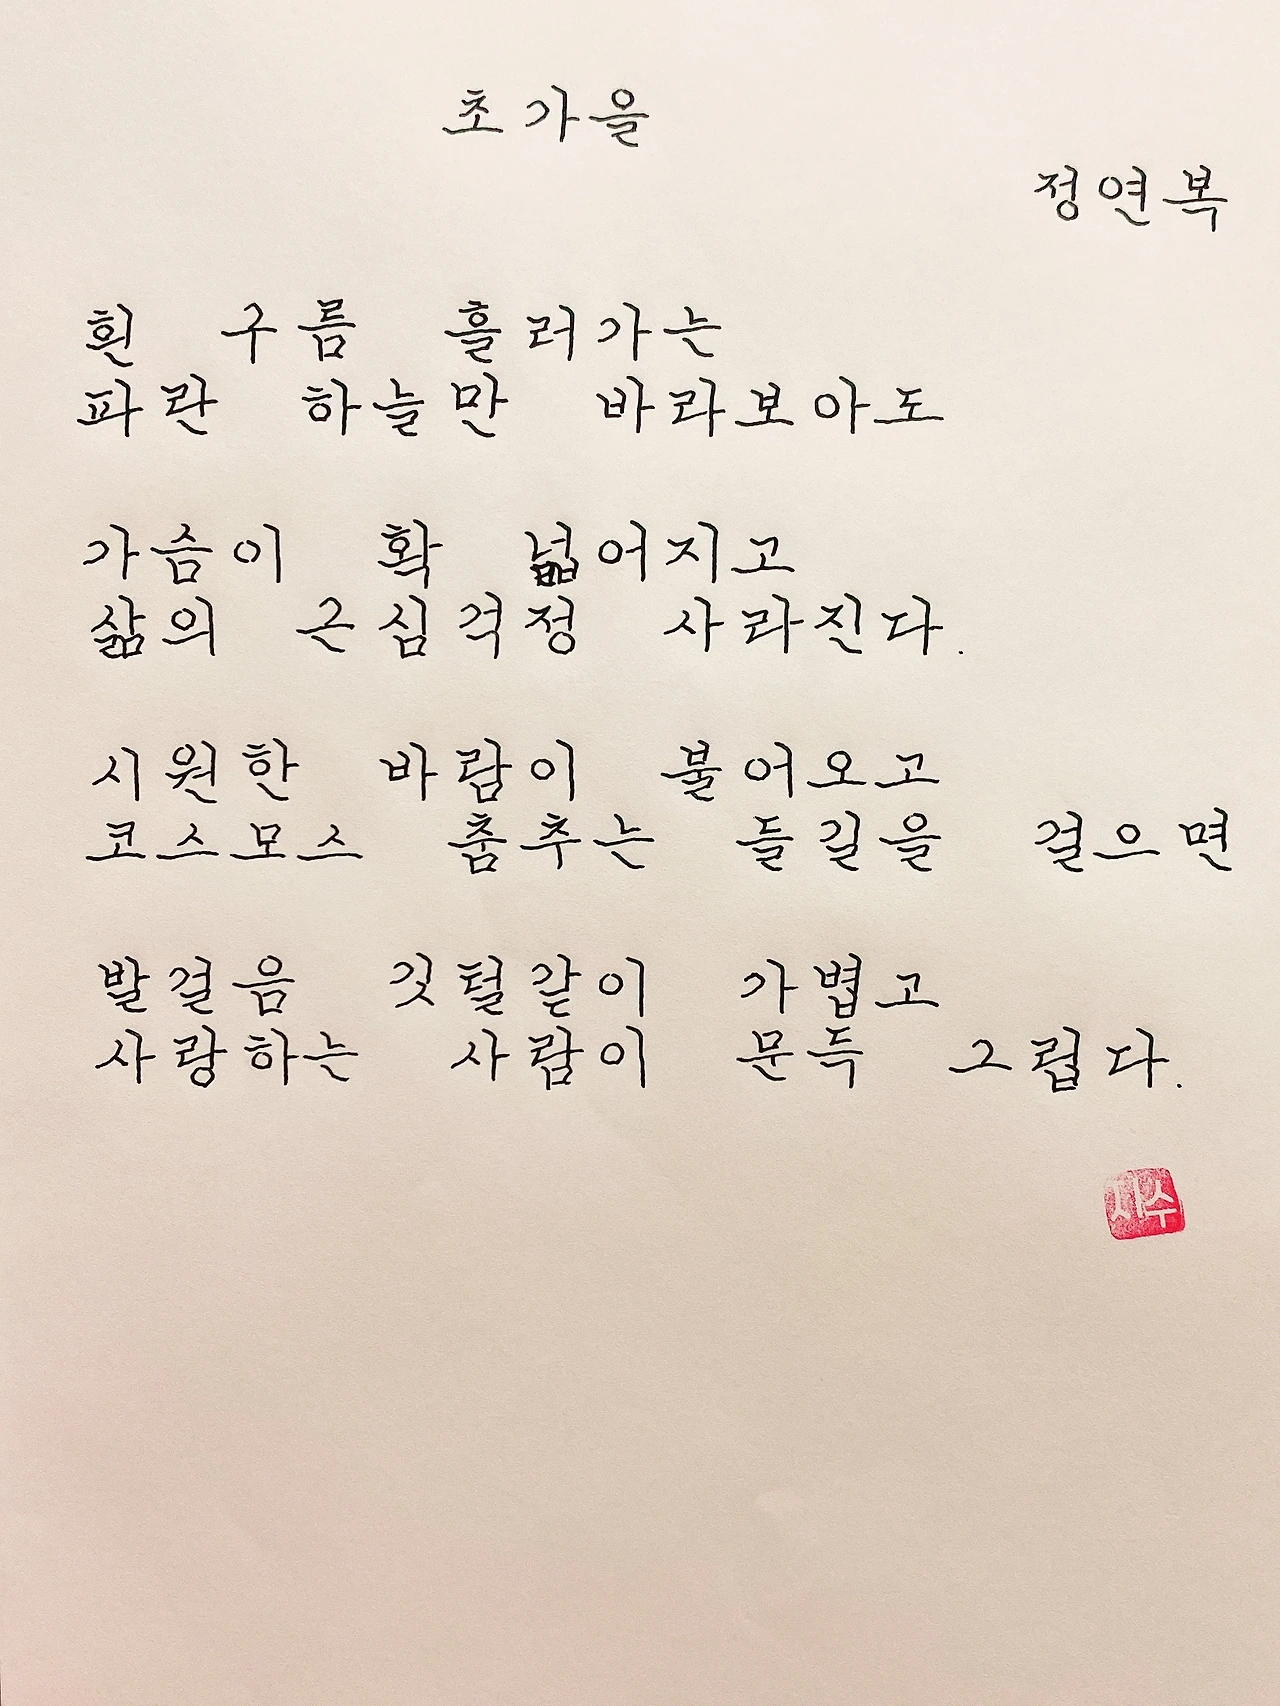 초가을
정연복
흰 구름 흘러가는
파란 하늘만 바라보아도
가슴이 확 넓어지고
삶의 근심걱정 사라진다.
시원한 바람이 불어오고
코스모스 춤추는 들길을 걸으면
발걸음 깃털같이 가볍고
사랑하는 사람이 문득 그립다.